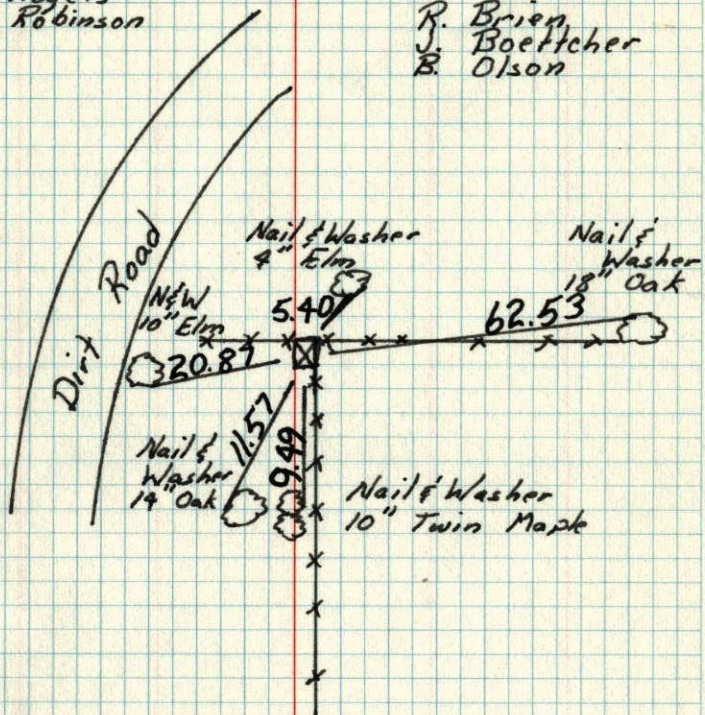 Robinson
R. Brien
J. Boettcher
B. Olson
Nail & Washer
4" Elm
Nail &
Washer
18" Oak
Dirt Road
N&W
10" Elm
5.40
62.53
20.87
11.57
9.49
Nail &
Washer
14" Oak
Nail & Washer
10" Twin Maple